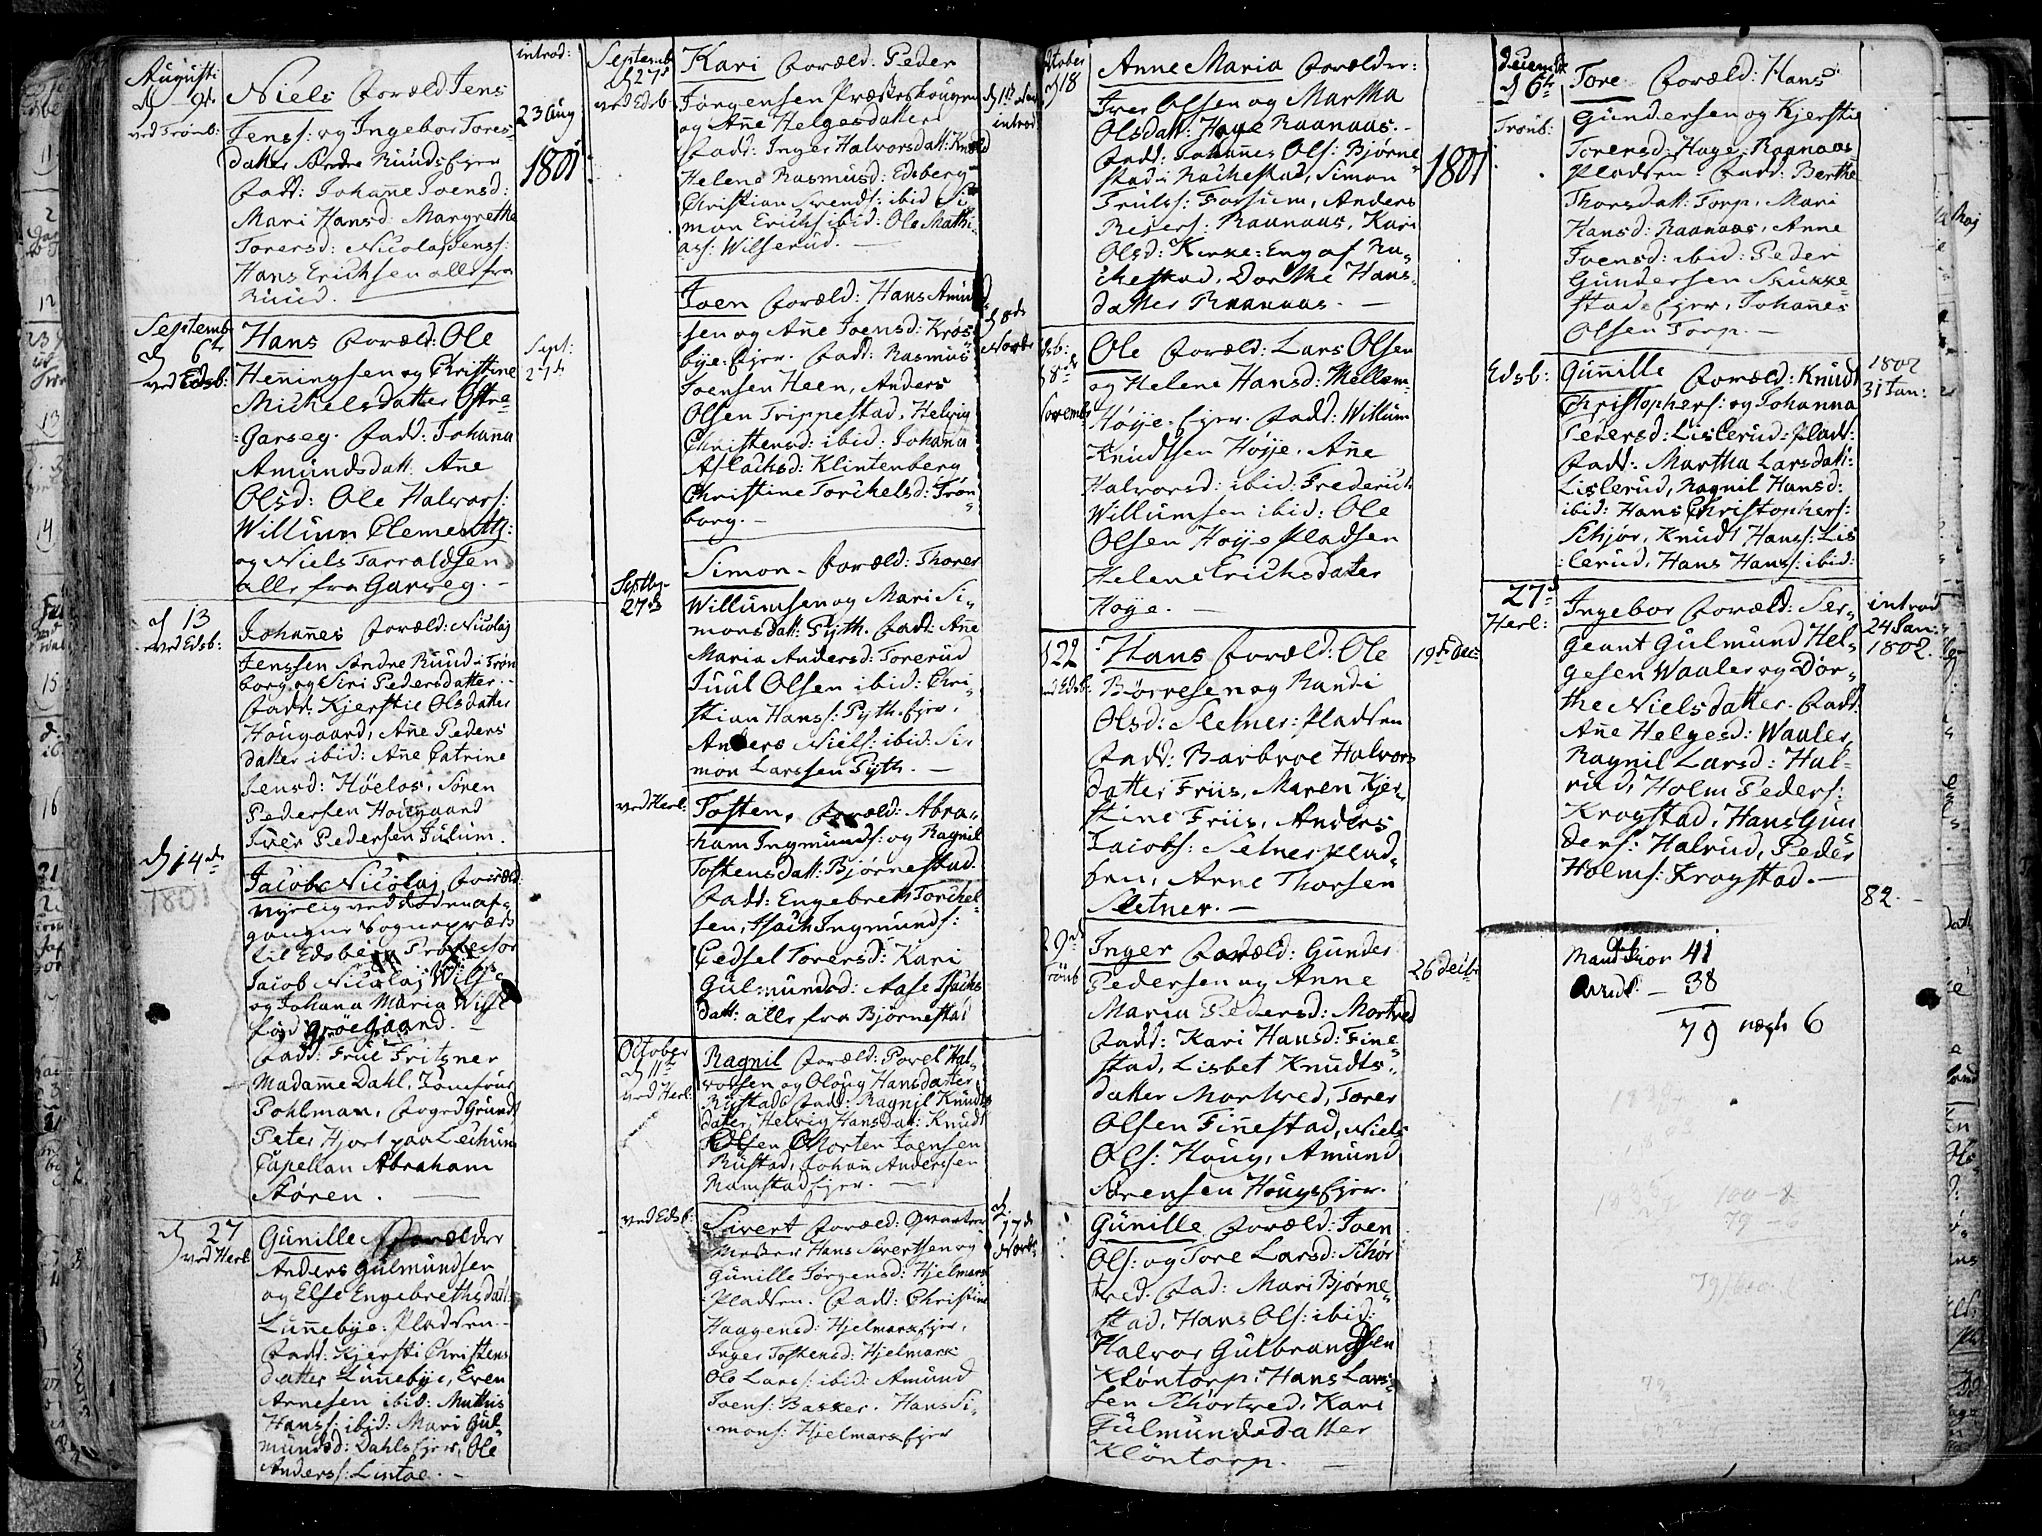 Augusti
d. 9de
ved Trömb:
Niels Foræld: Jens
Jenss: og Ingebor Tores-
datter Andre Ruuds Ejer
Fadd: Johanne Joensd:
Mari Hansd: Margrethe
Torersd: Nicolaj Jenss:
Hans Erichsen alle fra
Ruud.
introd:
23 Aug
1801
Septemb
d. 6te
ved Edsb:
Hans Foræld: Ole
Henningsen og Christine
Michelsdatter Østre
Garseg. Fadd: Johanna
Amundsdatt: Ane
Olsd: Ole Halvors:
Willum Clements:
og Niels Tarraldsen
alle fra Garseg. -
Sept:
27de
d. 13
ved Edsb:
Johannes Foræld: Nicolaj
Jenssen Andre Ruud i Tröm
borg og Siri Pedersdatter.
Fadd: Kjerstie Olsdatter
Hougaard, Ane Peders
datter ibid: Ane Catrine
Jensd: Höelos, Sören
Pedersen Hougaard
Iver Pedersen Julum.
d. 14de
1801
Jacob Nicolaj Foræld:
nyelig ved Döden af-
gangne Sognepræst
til Edsberg Professor
Jacob Nicolaj Wilse
og Johana Maria Wilse
föd Gröegaard. -
Fadd: Frue Fritzner
Madamme Dahl, Jomfrue
Pohlman, Foged Grundt
Peter Hjort paa Lechum
Capellan Abraham
Stören.
d. 27
ved Herl:
Gunille Forældre
Anders Gulmundsen
og Else Engebrethsdatt:
Lunnebye: Pladsen.
Fadd: Kjersti Christens
datter Lunnebye, Even
Arnesen ibid: Mathis
Hanss: ibid: Mari Gul-
mundsd: Dahls Ejer, Ole
Anderss: Lintoe. -
Septemb
d. 27de
ved Edsb:
Kari Foræld: Peder
Jörgensen Præsteskougen
og Ane Helgesdatter
Fadd: Inger Halvorsdatt:
Helene Rasmusd: Edsberg
Christian Svends: ibid: Si-
mon Erichs: ibid: Ole Mathi-
ass: Wilserud. -
introd:
Joen Foræld: Hans Amund
sen og Ane Joensd: Krös
bye Ejer. Fadd: Rasmus
Joensen Heen, Anders
Olsen Trippestad, Helvig
Christensd: ibid: Johana
Aslachsd: Klintenberg
Christine Torchelsd: Tröm
borg. -
Septbr
27de
Simon Foræld: Thorer
Willumsen og Mari Si-
monsdatt: Pyth. Fadd: Ane
Maria Andersd: Torerud
Juul Olsen ibid: Chri-
stian Hanss: Pyth Ejer,
Anders Niels: ibid: Si-
mon Larssen Pyth. -
ved Herl:
Tosten, Foræld: Abra-
ham Ingmunds: og Ragnil
Tostensdatt: Björnestad
Fadd: Engebreth Torchel-
sen, Isach Ingmunds:
Gedsel Torersd: Kari
Gulmundsd: Aase Isachs
datt: alle fra Björnestad
October
d. 11te
ved Herl:
Ragnil Foræld: Povel Hal-
vorsen og Oloug Hansdatter
Rustad Fadd: Ragnil Knuds
datter, Helvig Hansdatt: Knud
Olsen, Morten Joensen
Rustad, Johan Andersen
Ramstad Ejer. -
ved Edsb:
Sivert Foræld: Qvarteer
Mester Hans Sivertsen og
Gunille Jörgensd: Hjelmark
Pladsen. Fadd: Christine
Haagensd: Hjelmark Ejer,
Inger Tostensd: Hjelmark
Ole Lars: ibid: Amund
Joens: Basker. Hans Si-
mons: Hjelmark Ejer
d. 17de
Novbr
October
d. 18
Anne Maria Forælder:
Iver Olsen og Martha
Olsdatt: Haye Raanaas. -
Fadd: Johannes Ols: Björne
stad i Rachestad, Simon
Truls: Forsium, Anders
Rejers: Raanaas, Kari
Olsd: Kirke: Eng af Ra-
chestad, Dorthe Hans-
datter Raanaas. -
1801
Edsb:
d. 8de
Novembr
Ole Foræld: Lars Olsen
og Helene Hansd: Mellem-
Höije Ejer. Fadd: Willum
Knudsen Höije. Ane
Halvorsd: ibid: Frederich
Willumsen ibid: Ole
Olsen Höije Pladsen
Helene Erichsdatter
Höye. -
d. 22
ved Edsb:
Hans Foræld: Ole
Börresen og Randi
Olsd: Sletner: Pladsen
Fadd: Barbroe Halvors
datter Friis, Maren Kjer-
stine Friis, Anders
Jacobs: Sletner Plad-
sen, Arne Thorsen
Sletner. -
19de Dec:
29de
Trömb:
Inger Foræld: Gunder
Pedersen og Anne
Maria Pedersd: Mortved
Fadd: Kari Hansd: Fine-
stad, Lisbet Knuds-
datter Mortved, Torer
Olsen Finnestad, Niels
Ols: Houg, Amund
Sörensen Hougs Ejer.
26 Decbr
Gunille Foræld: Joen
Ols: og Tore Larsd: Skör
tved. Fad: Mari Björne-
stad, Hans Ols: ibid:
Halvor Gulbrandsen
Klöntorp: Hans Lars-
sen Skörtved, Kari
Gulmundsdatter
Klöntorp. -
Decemb
d. 6te
Trömb:
Tore Foræld: Hans
Gundersen og Kjerstie
Torersd: Haye: Raanaas
Pladsen. Fadd: Berthe
Thorsdatt: Torp, Mari
Hansd: Raanaas, Anne
Joensd: ibid: Peder
Gundersen Skukke-
stad Ejer, Johannes
Olsen Torp. -
Edsb:
Gunille Foræld: Knud
Christophers: og Johanna
Pedersd: Lislerud: Plads:
Fadd: Martha Larsdatt:
Lislerud, Ragnil Hansd:
ibid: Hans Christophers:
Skjör, Knud Hanss: Lis
lerud, Hans Hanss: ibid:
1802
31 Jan:
27de
Herl:
Ingebor Foræld: Ser-
geant Gulmund Hel-
gesen Waaler og Dor-
the Nielsdatter. Fadd:
Ane Helgesd: Waaler,
Ragnil Larsd: Hal-
rud, Holm Peders:
Krogstad, Hans Gun
ders: Halrud, Peder
Holms: Krogstad. -
introd
24 Jan:
1802.
82.
Mandkiön 41
Qvindk. - 38
79 uægte 6